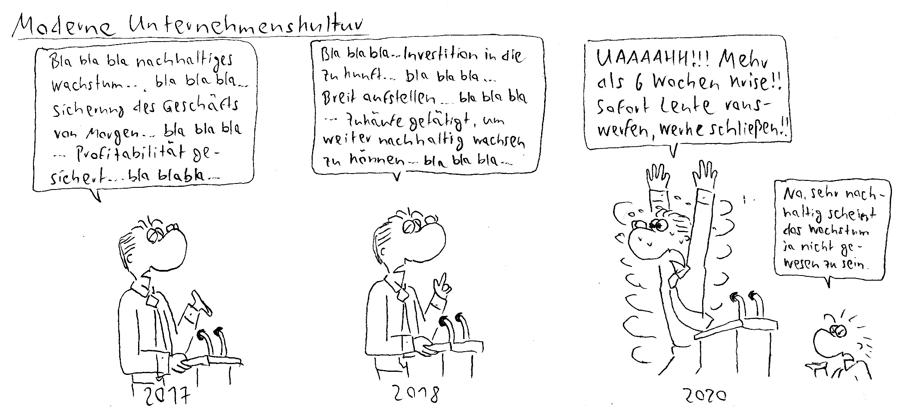 Moderne Unternehmenskultur
Bla bla bla nachhaltiges
wachstum... bla bla bla...
Sicherung des Geschäfts
von Morgen... bla bla bla
... Profitabilität ge-
sichert... bla blabla...
Bla bla bla... Investition in die
Zukunft... bla bla bla...
Breit aufstellen... bla bla bla
... Zukäufe getätigt, um
weiter nachhaltig wachsen
zu können... bla bla bla...
UAAAAHH!!! Mehr
als 6 Wochen Krise!!
Sofort Leute raus-
werfen, Werke schließen!!
Na, sehr nach-
haltig scheint
das Wachstum
ja nicht ge-
wesen zu sein.
2017
2018
2020